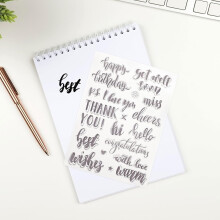 best
happy
birthday
Get well
soon
p.s. I love you
miss
THANK
YOU!
x
cheers
hi
hello
congratulations
best
wishes
with love